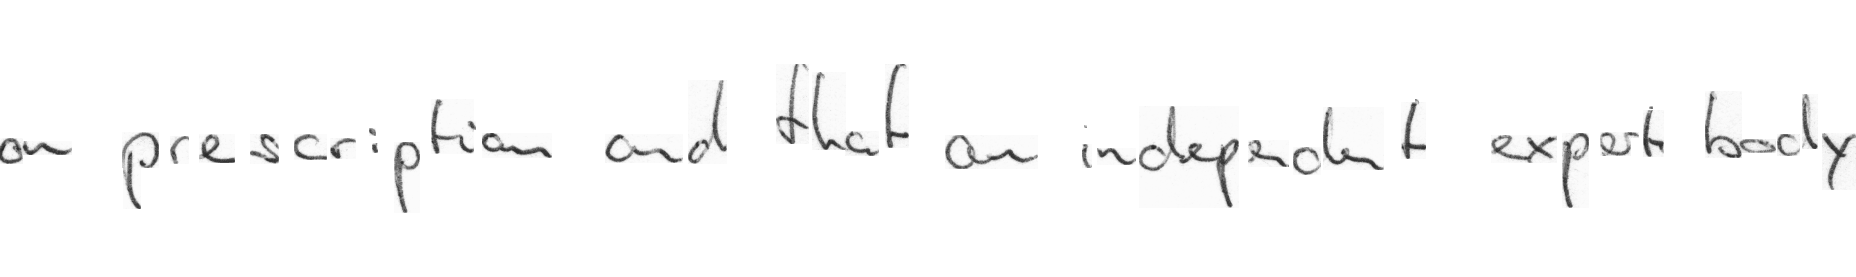 on prescription and that an independent expert body